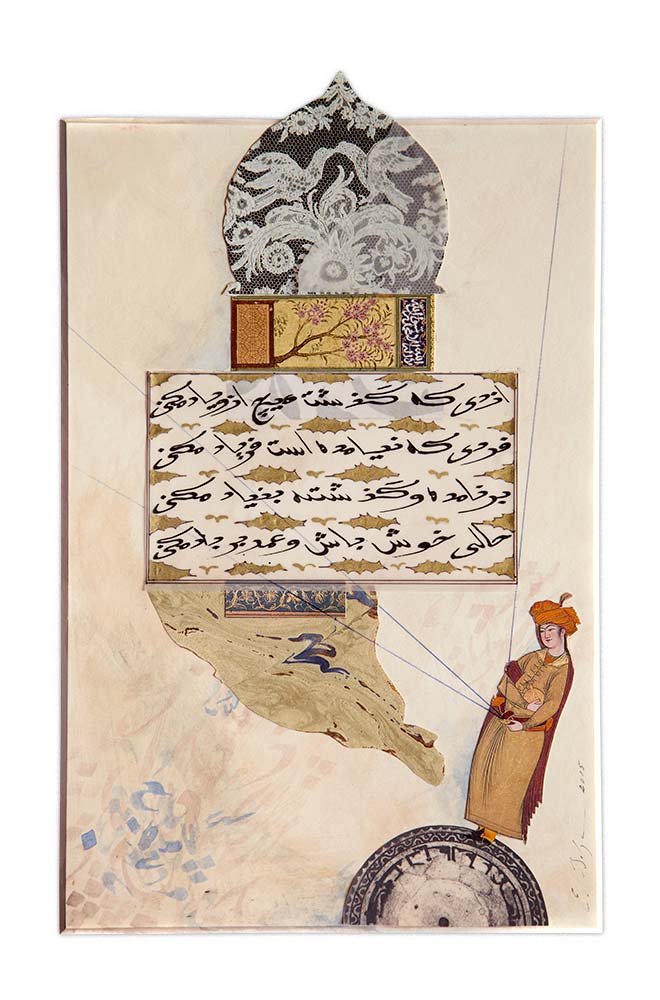 از دی که گذشت هیچ ازو یاد مکن
فردا که نیامده است فریاد مکن
بر نامده و گذشته بنیاد مکن
حالی خوش باش و عمر بر باد مکن
2015